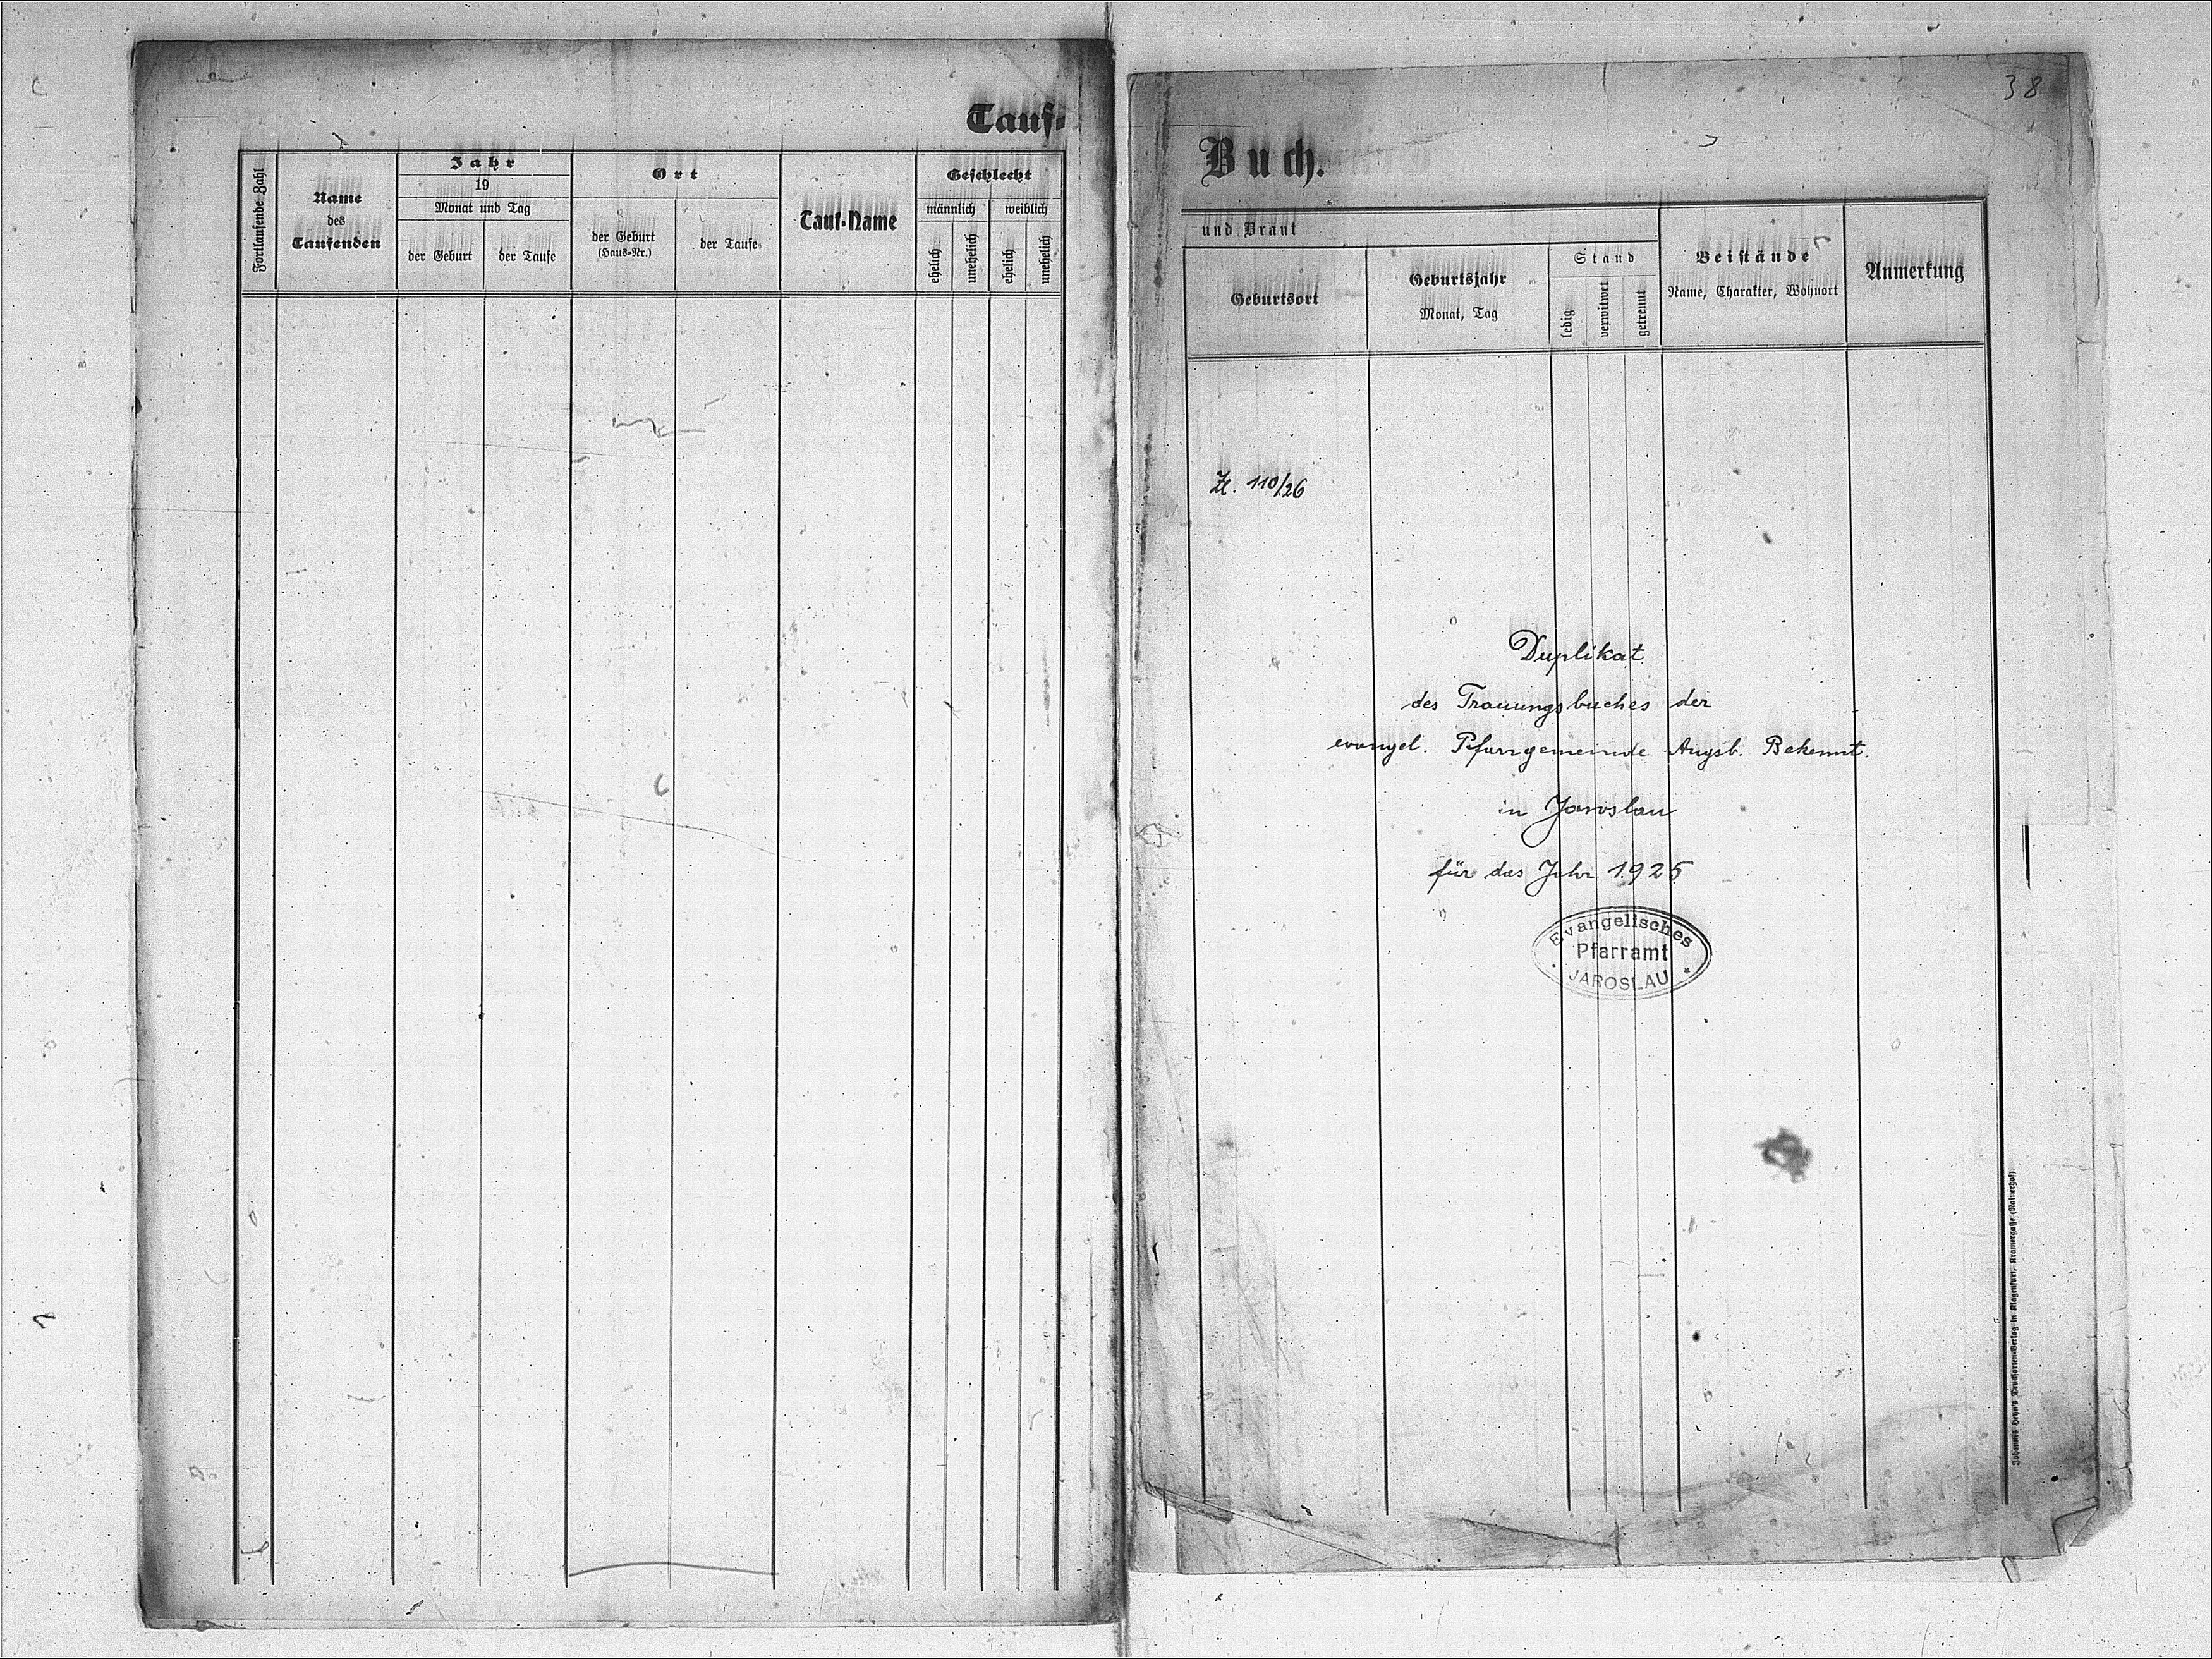 Tauf-
Fortlaufende Zahl
Name
des
Taufenden
Jahr
19
Monat und Tag
der Geburt
der Taufe
Ort
der Geburt
(Haus-Nr.)
der Taufe
Tauf-Name
Geschlecht
männlich
weiblich
ehelich
unehelich
ehelich
unehelich
38
Buch.
und Braut
Geburtsort
Geburtsjahr
Monat, Tag
Stand
ledig
verwitwet
getrennt
Beistände
Name, Charakter, Wohnort
Anmerkung
Zl. 110/26
Duplikat
des Trauungsbuches der
evangel. Pfarrgemeinde Augsb. Bekennt.
in Jaroslau
für das Jahr 1925
Evangelisches
Pfarramt
JAROSLAU
Johannes Heyn's Drucksorten-Verlag in Klagenfurt, Kramergasse (Rainerhof)